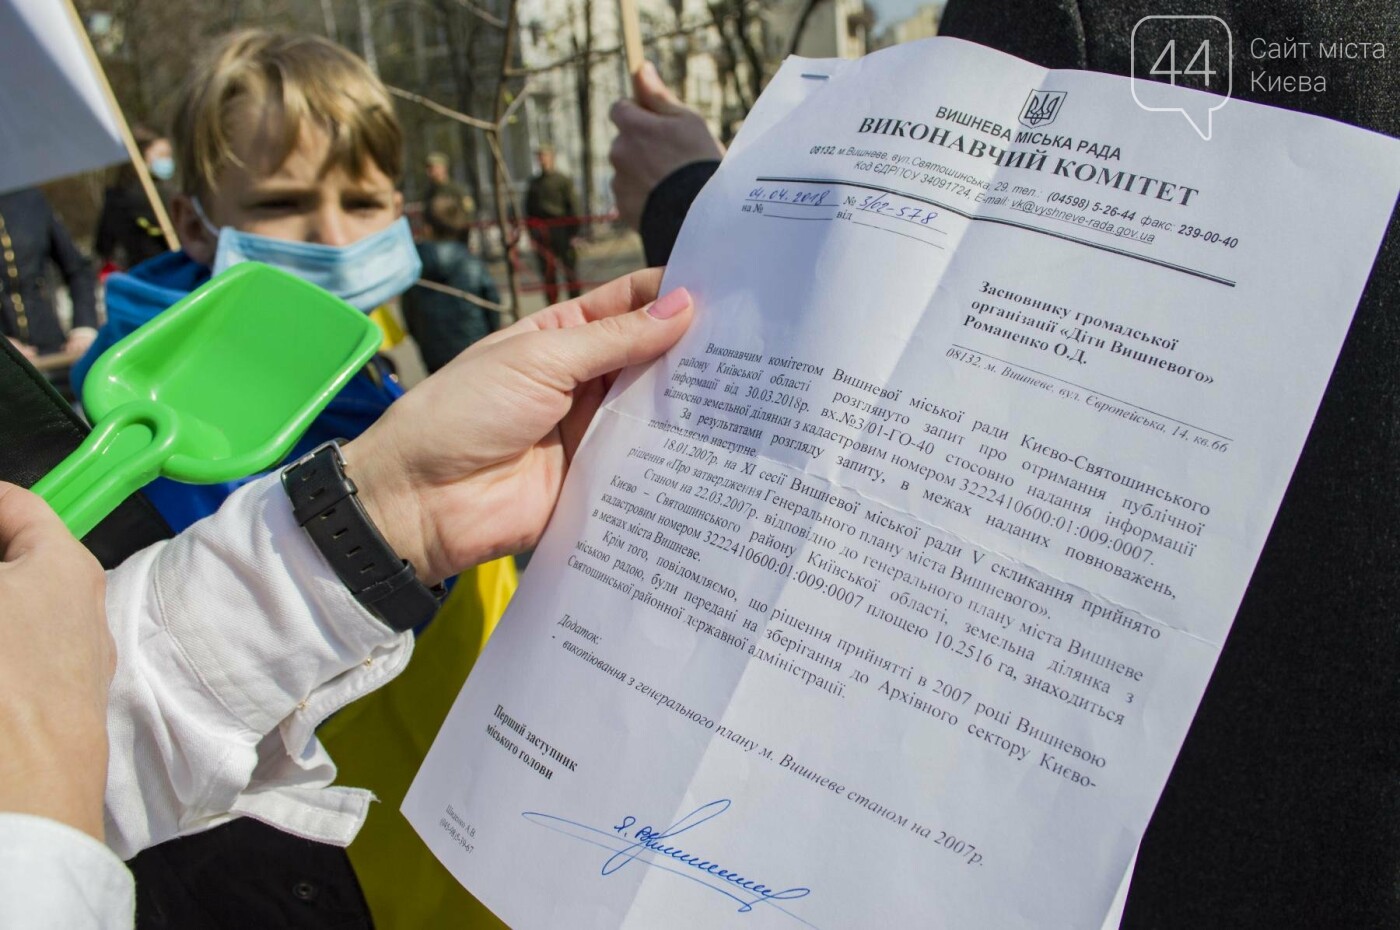 44
Сайт міста
Києва
ВИШНЕВА МІСЬКА РАДА
ВИКОНАВЧИЙ КОМІТЕТ
08132, м.Вишневе, вул.Святошинська, 29, тел.: (04598) 5-26-44 факс: 239-00-40
Код ЄДРПОУ 34091724, E-mail: vk@vyshneve-rada.gov.ua
04.04.2018 № 3/02-578
на № від
Засновнику громадської
організації «Діти Вишневого»
Романенко О.Д.
08132, м. Вишневе, вул. Європейська, 14, кв.66
Виконавчим комітетом Вишневої міської ради Києво-Святошинського
району Київської області розглянуто запит про отримання публічної
інформації від 30.03.2018р. вх.№3/01-ГО-40 стосовно надання інформації
відносно земельної ділянки з кадастровим номером 3222410600:01:009:0007.
За результатами розгляду запиту, в межах наданих повноважень,
повідомляємо наступне.
18.01.2007р. на XI сесії Вишневої міської ради V скликання прийнято
рішення «Про затвердження Генерального плану міста Вишневого».
Станом на 22.03.2007р. відповідно до генерального плану міста Вишневе
Києво – Святошинського району Київської області, земельна ділянка з
кадастровим номером 3222410600:01:009:0007 площею 10.2516 га, знаходиться
в межах міста Вишневе.
Крім того, повідомляємо, що рішення прийняті в 2007 році Вишневою
міською радою, були передані на зберігання до Архівного сектору Києво-
Святошинської районної державної адміністрації.
Додаток:
- викопіювання з генерального плану м. Вишневе станом на 2007р.
Перший заступник
міського голови